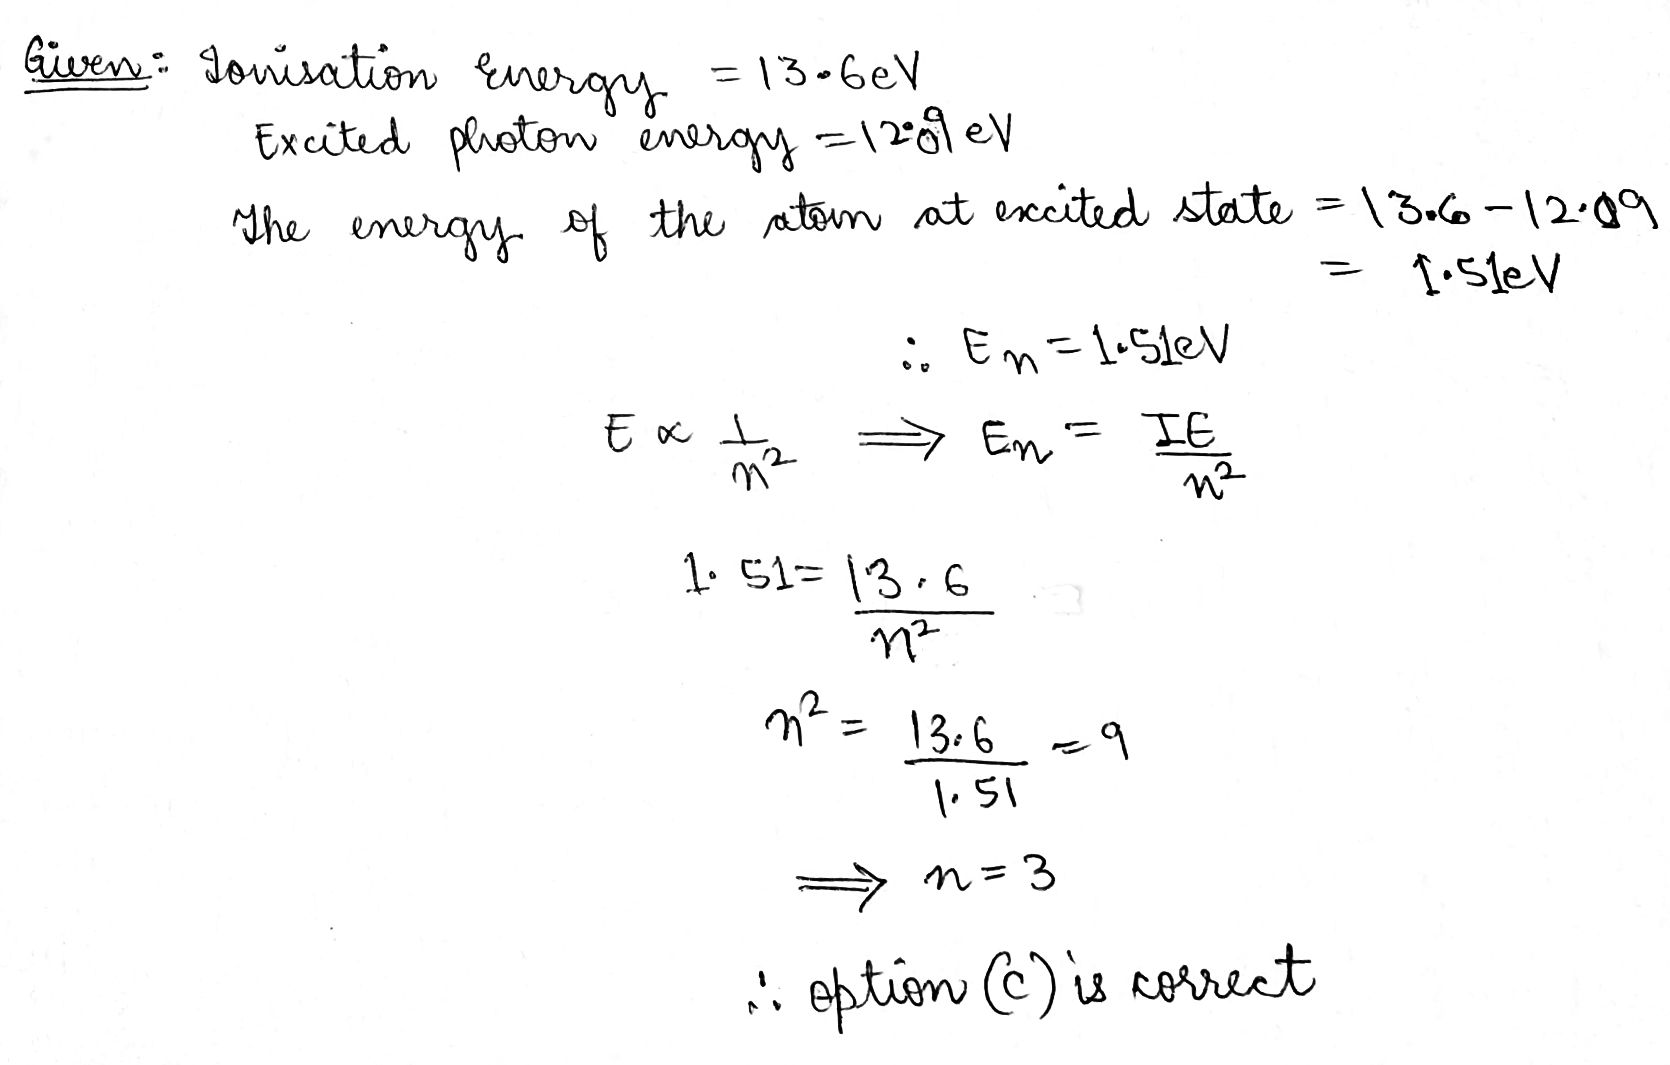 Given: Ionisation Energy = 13.6eV
Excited photon energy = 12.09 eV
The energy of the atom at excited state = 13.6 - 12.09
= 1.51eV
∴ En = 1.51eV
E ∝ 1/n² ⟹ En = IE/n²
1.51 = 13.6/n²
n² = 13.6/1.51 = 9
⟹ n = 3
∴ option (C) is correct